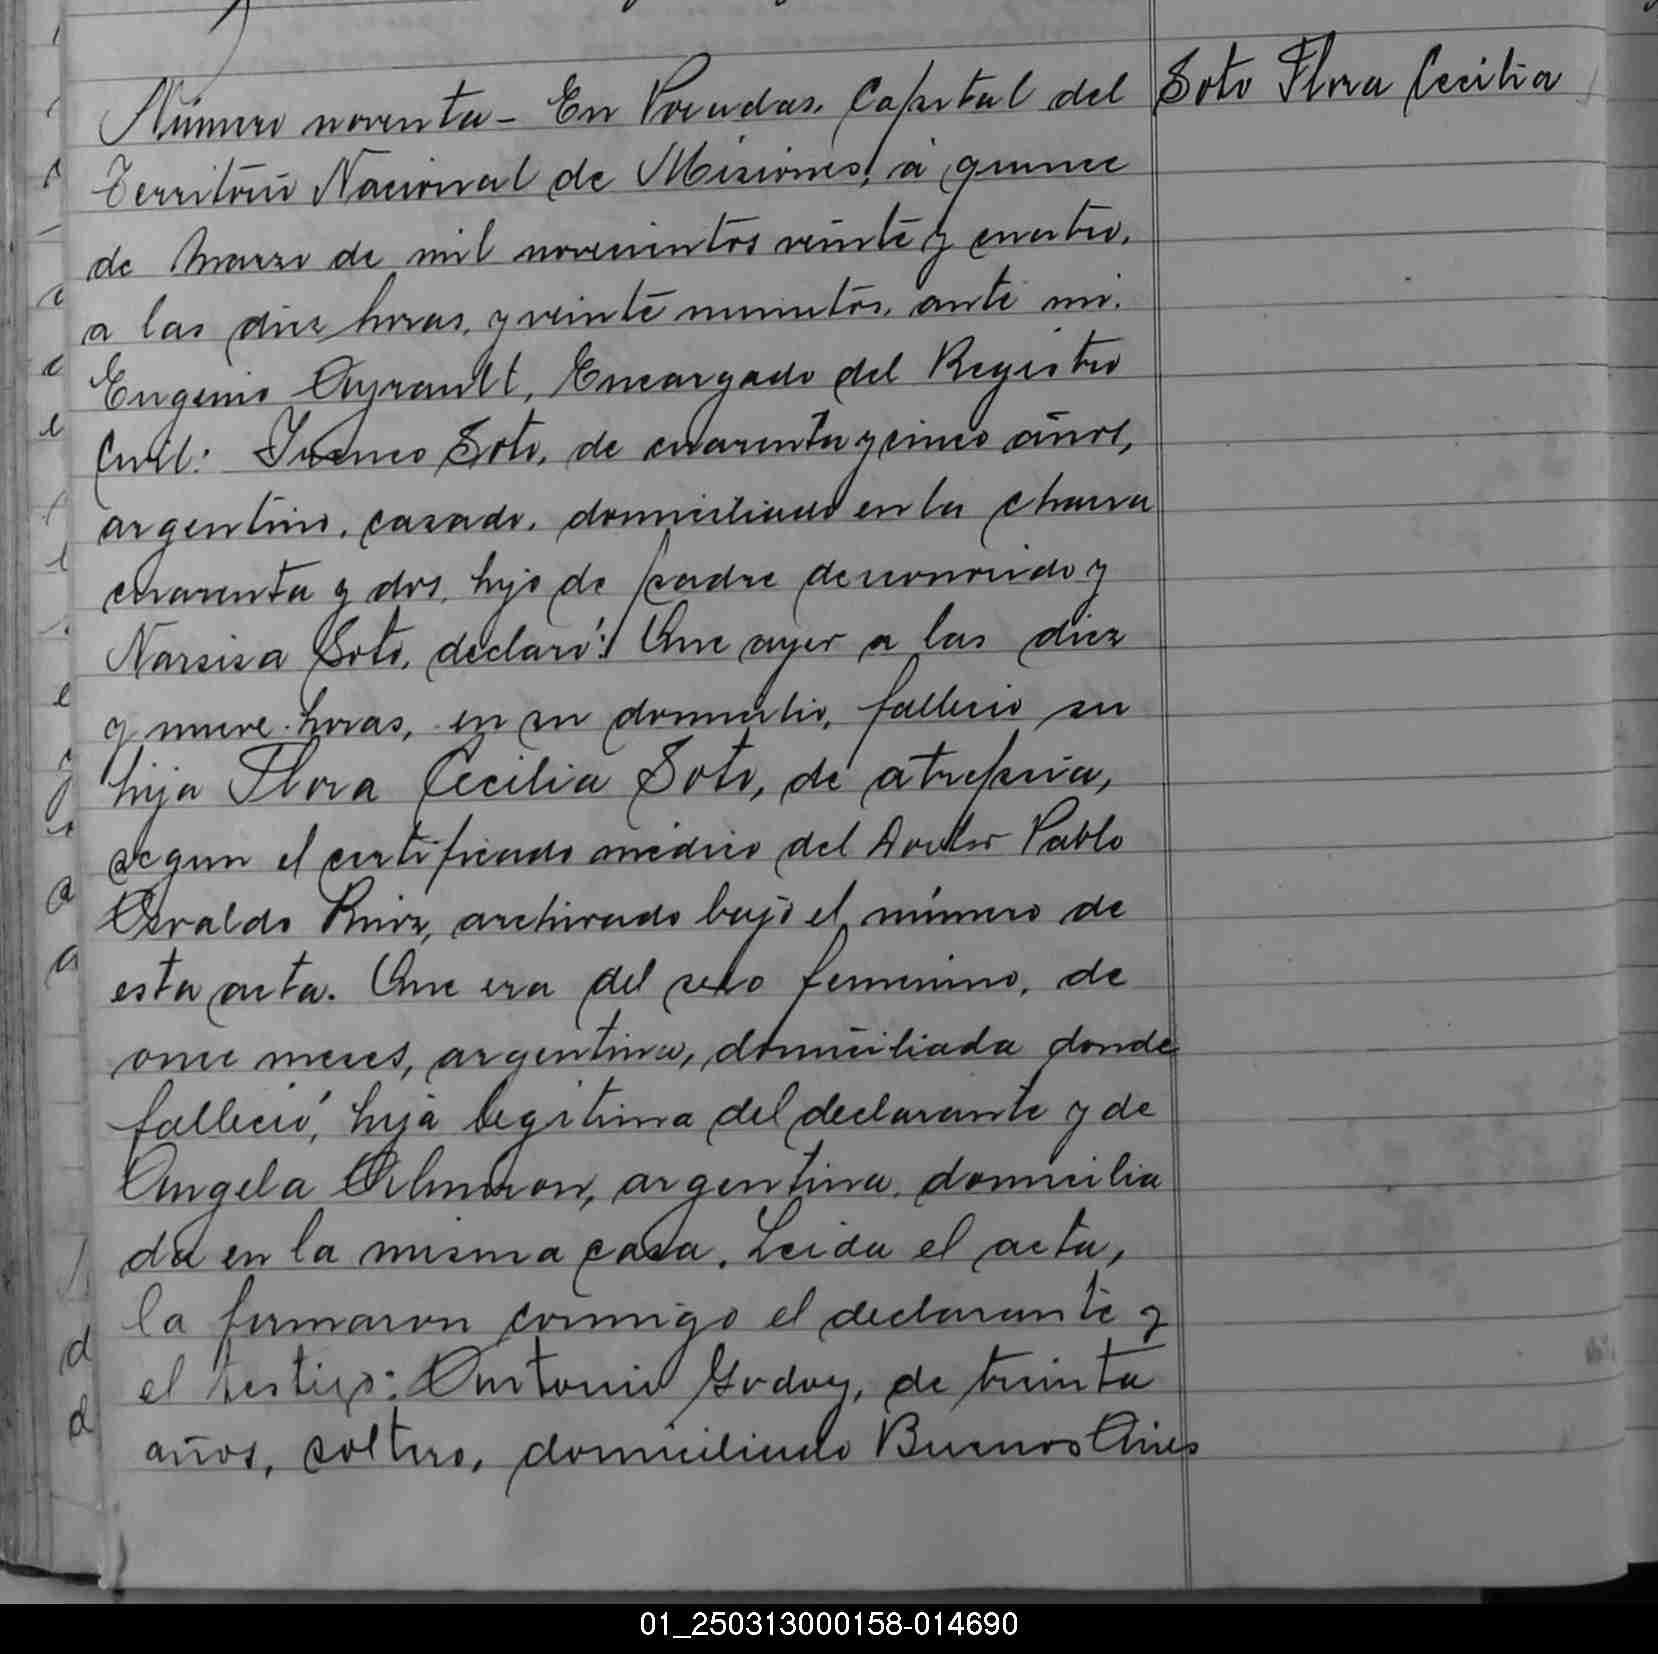 Número noventa - En Posadas. Capital del
Soto Flora Cecilia
Territorio Nacional de Misiones, a quince
de Marzo de mil novecientos veinte y cuatro,
a las diez horas, y veinte minutos, ante mi.
Eugenio Ayrault, Encargado del Registro
Civil: Soto, de cuarenta y cinco años,
argentino, casado, domiciliado en la chacra
cuarenta y dos, hijo de padre desconocido y
Narsisa Soto, declaró: Que ayer a las diez
y nueve horas, en su domicilio, falleció su
hija Flora Cecilia Soto, de atrepsia,
segun el certificado médico del Doctor Pablo
Osvaldo Ruiz, archivado bajo el número de
esta acta. Que era del sexo femenino, de
once meses, argentina, domiciliada donde
falleció, hija legitima del declarante y de
Angela Almiron, argentina, domicilia
da en la misma casa. Leida el acta,
la firmaron conmigo el declarante y
el testigo: Antonio Godoy, de treinta
años, soltero, domiciliado Buenos Aires
01_250313000158-014690